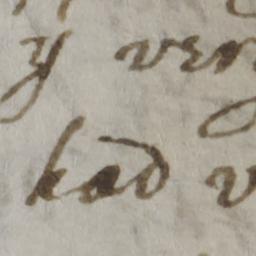 y ver
kad v